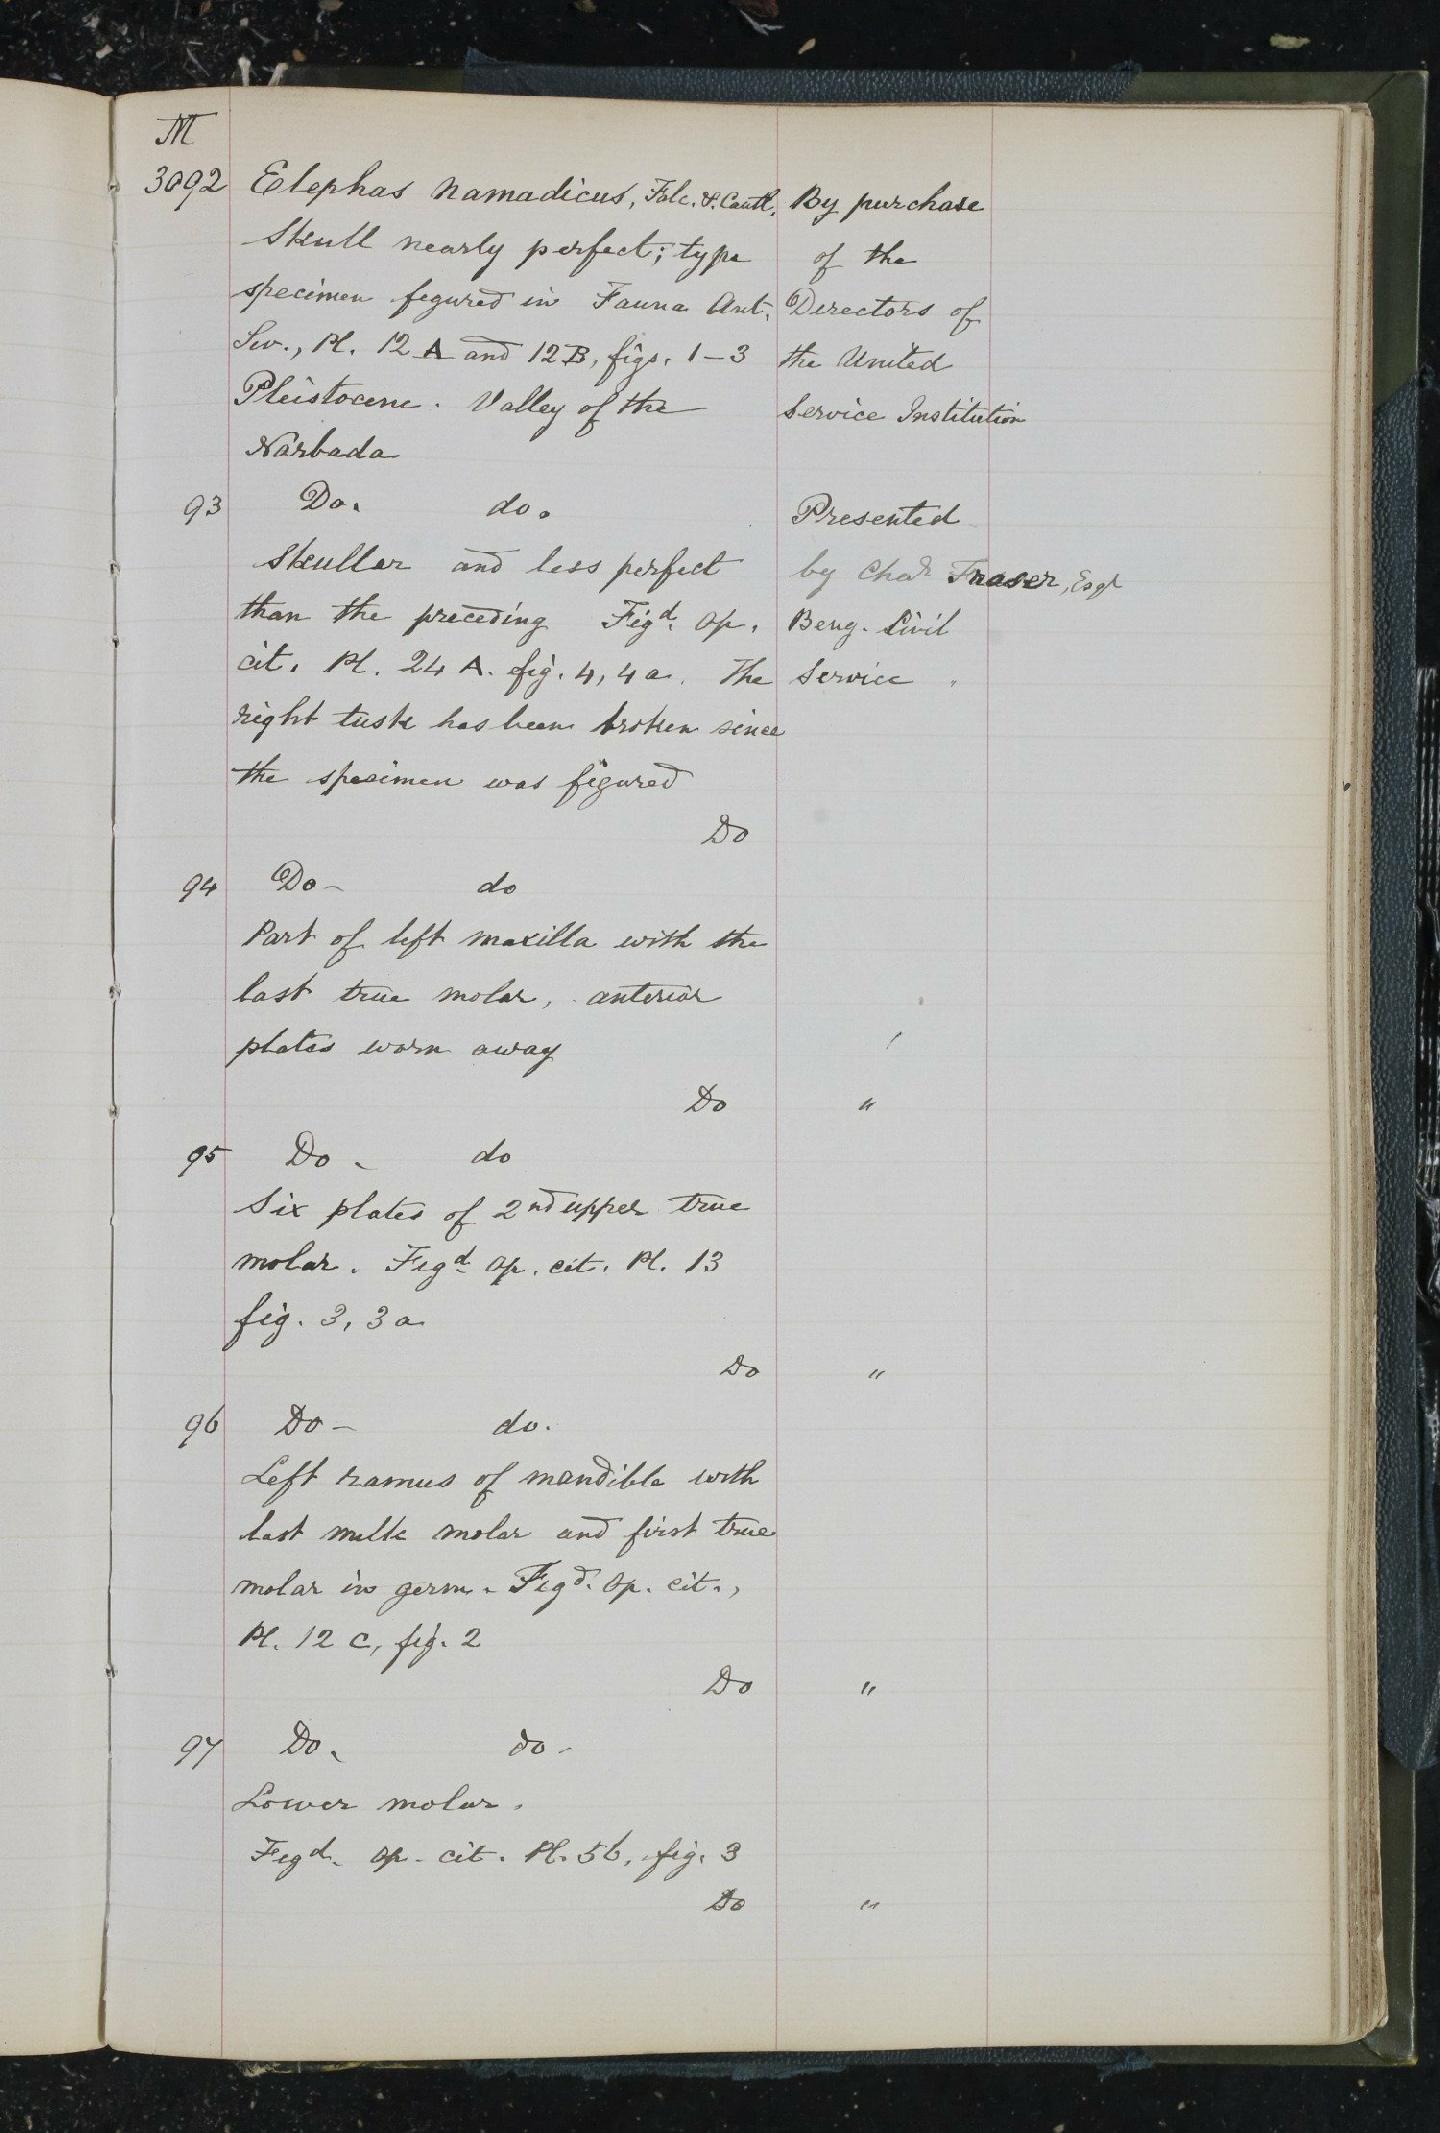 M
3092 Elephas namadicus, Falc. & Cautl. By purchase
Skull nearly perfect; type of the
specimen figured in Fauna Ant. Directors of
Siv., Pl. 12 A and 12 B, figs. 1-3 the United
Pleistocene. Valley of the Service Institution
Narbada
93 Do. do. Presented
Skuller and less perfect by Chas Fraser, Esqr
than the preceding Figd. op. Beng. Civil
cit. Pl. 24 A. fig. 4, 4a. The Service
right tusk has been broken since
the specimen was figured
Do
94 Do- do
Part of left maxilla with the
last true molar, anterior
plates worn away
Do "
95 Do. do
Six plates of 2nd upper true
molar. Figd op. cit. Pl. 13
fig. 3, 3a
Do "
96 Do- do.
Left ramus of mandible with
last milk molar and first true
molar in germ. Figd. op. cit.,
Pl. 12 C, fig. 2
Do "
97 Do. do-
Lower molar.
Figd. op. cit. Pl. 56, fig. 3
Do "